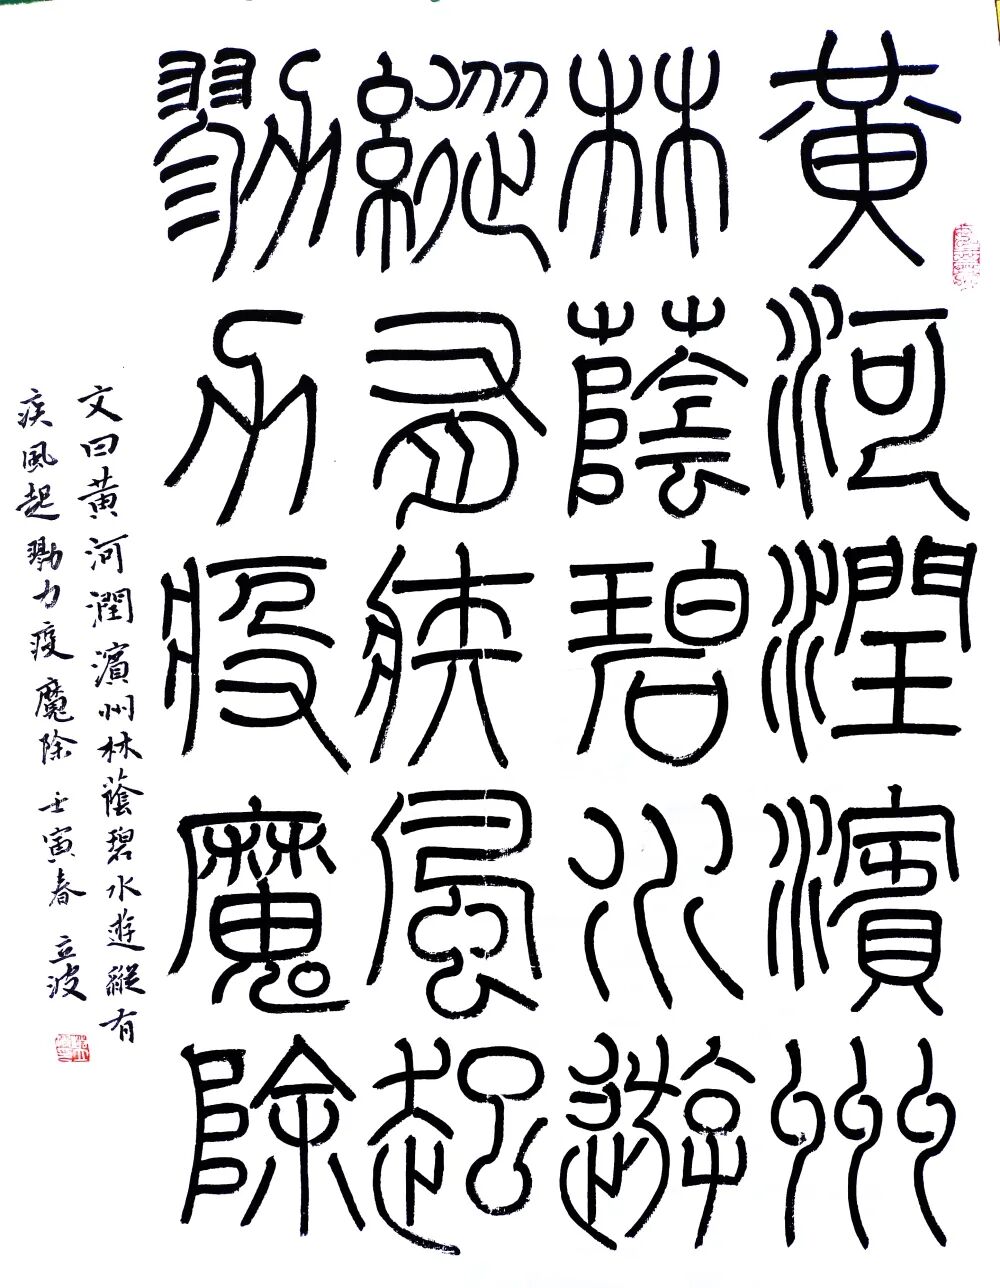 黃河潤濱州
林蔭碧水遊
縱有疾風起
勠力疫魔除
文曰黃河潤濱州林蔭碧水遊縱有
疾風起勠力疫魔除 壬寅春 立波